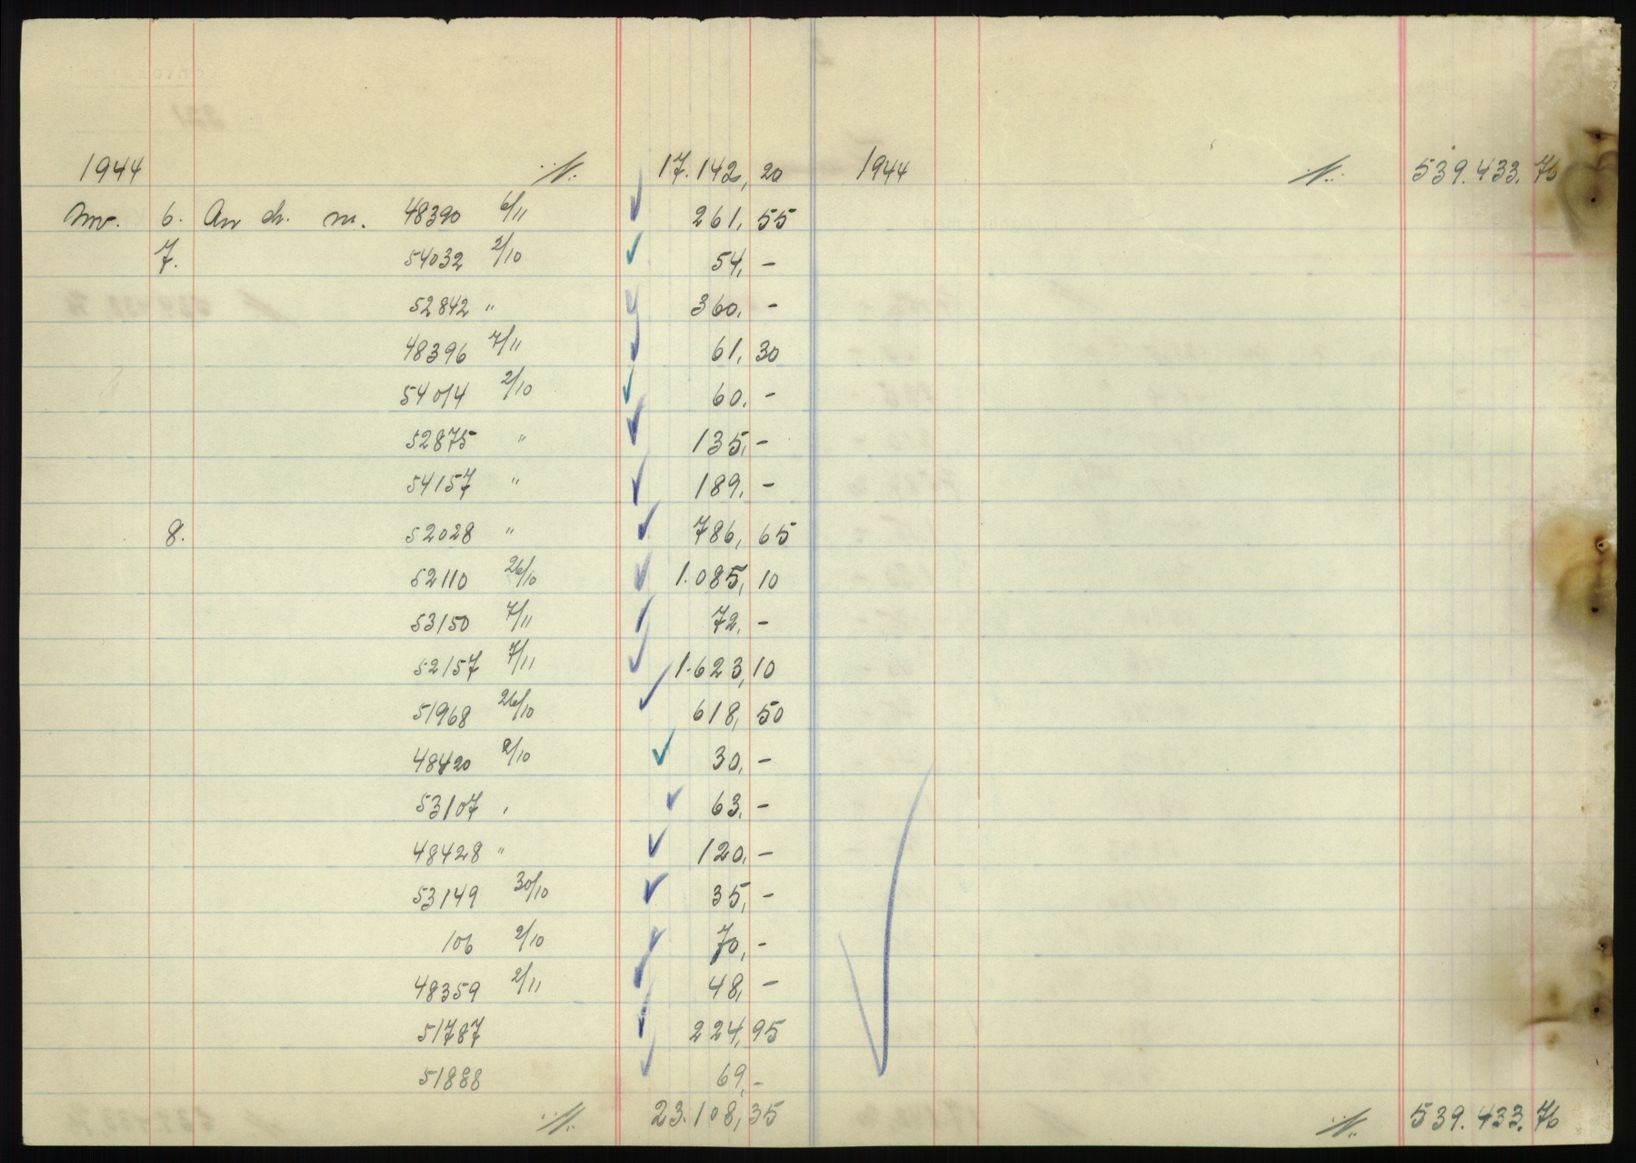 1944 ·/· 17.142,20 1944 ·/· 539.433.76
Nov. 6. An ch. n. 48390 6/11 261,55
7. 54032 2/10 54,-
52842 " 360,-
48396 7/11 61,30
54014 2/10 60,-
52875 " 135,-
54157 " 189,-
8. 52028 " 786,65
52110 26/10 1.085,10
53150 7/11 72,-
52157 7/11 1.623,10
51968 26/10 618,50
48420 2/10 30,-
53107 " 63,-
48428 " 120,-
53149 30/10 35,-
106 2/10 70,-
48359 2/11 48,-
51787 224,95
51888 69,-
·/· 23.108,35 ·/· 539.433.76